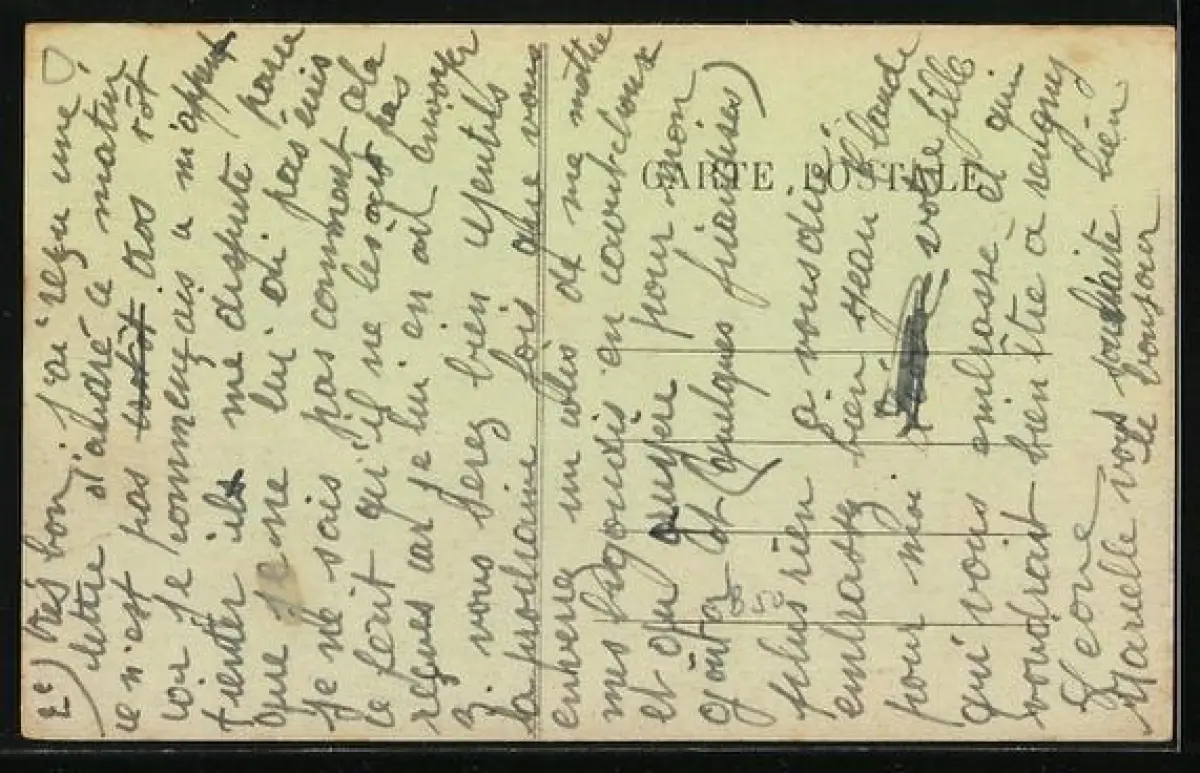 2e) très bon. J'ai reçu une
lettre d'andré ce matin
ce n'est pas trotôt dos rôt
voir je commençais a m'
trenter ils me dispute parce
que je ne lui di pas mis
je ne sais pas comment cela
ce ferit qu'il ne les ait pas
reçues car je lui en ait envoyer
3. vous serez bien gentils
la prochaine fois que vous
enverrez un colis de me mettre
mes en caoutchouc
et du pour mon
goûter et (quelques friandises)
plus rien a vous dire
embrassez bien jean Claude
pour moi. votre fille
qui vous embrasse et qui
voudrait bien être à
Leone bien
Marielle vous souhaite
le bonsoir
CARTE POSTALE